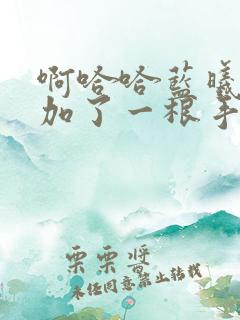 啊哈哈蓝曦
加了一根手
栗栗酱
未经同意禁止转载